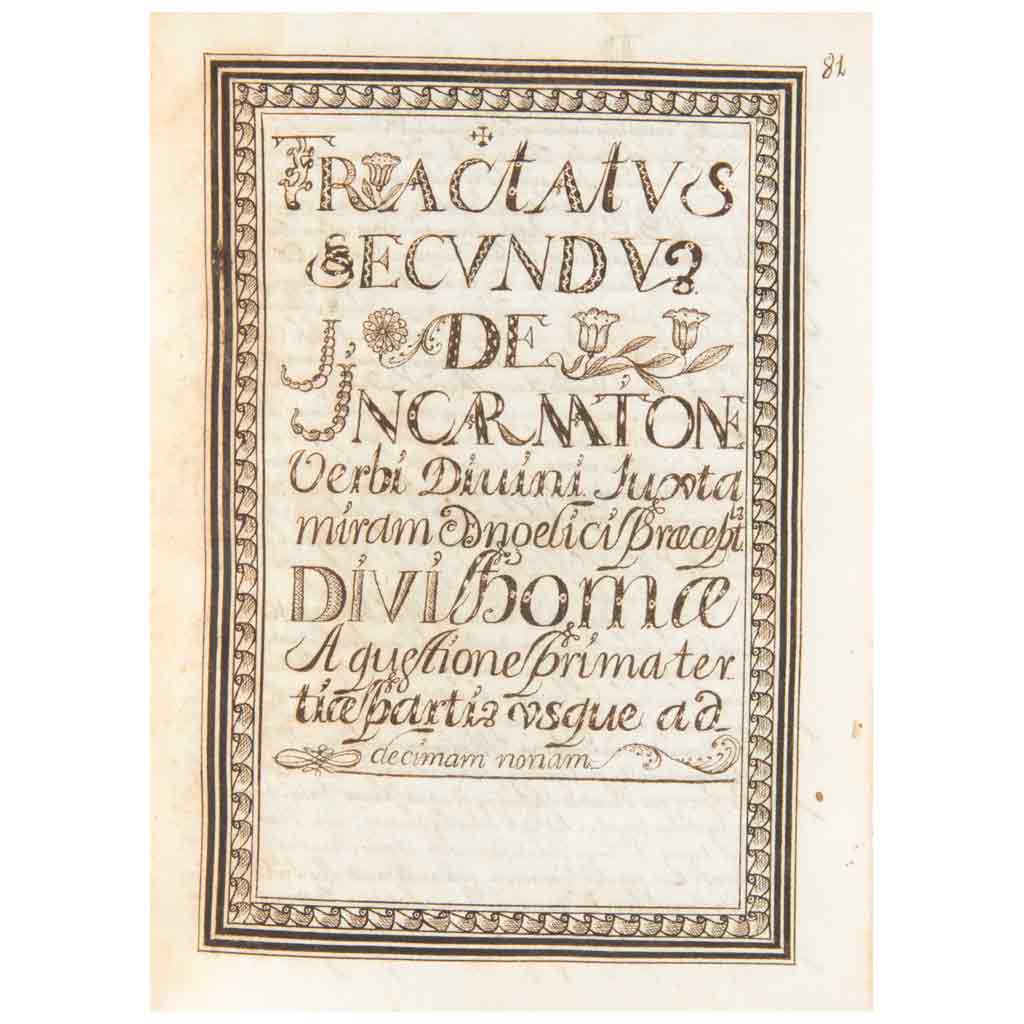 81
TRACTATVS
SECVNDVS
J DE
JNCARNATIONE
Verbi Diuini Juxta
miram Angelici Præcepts
DIVI Thomæ
A questione prima ter
tiæ partis vsque ad
decimam nonam